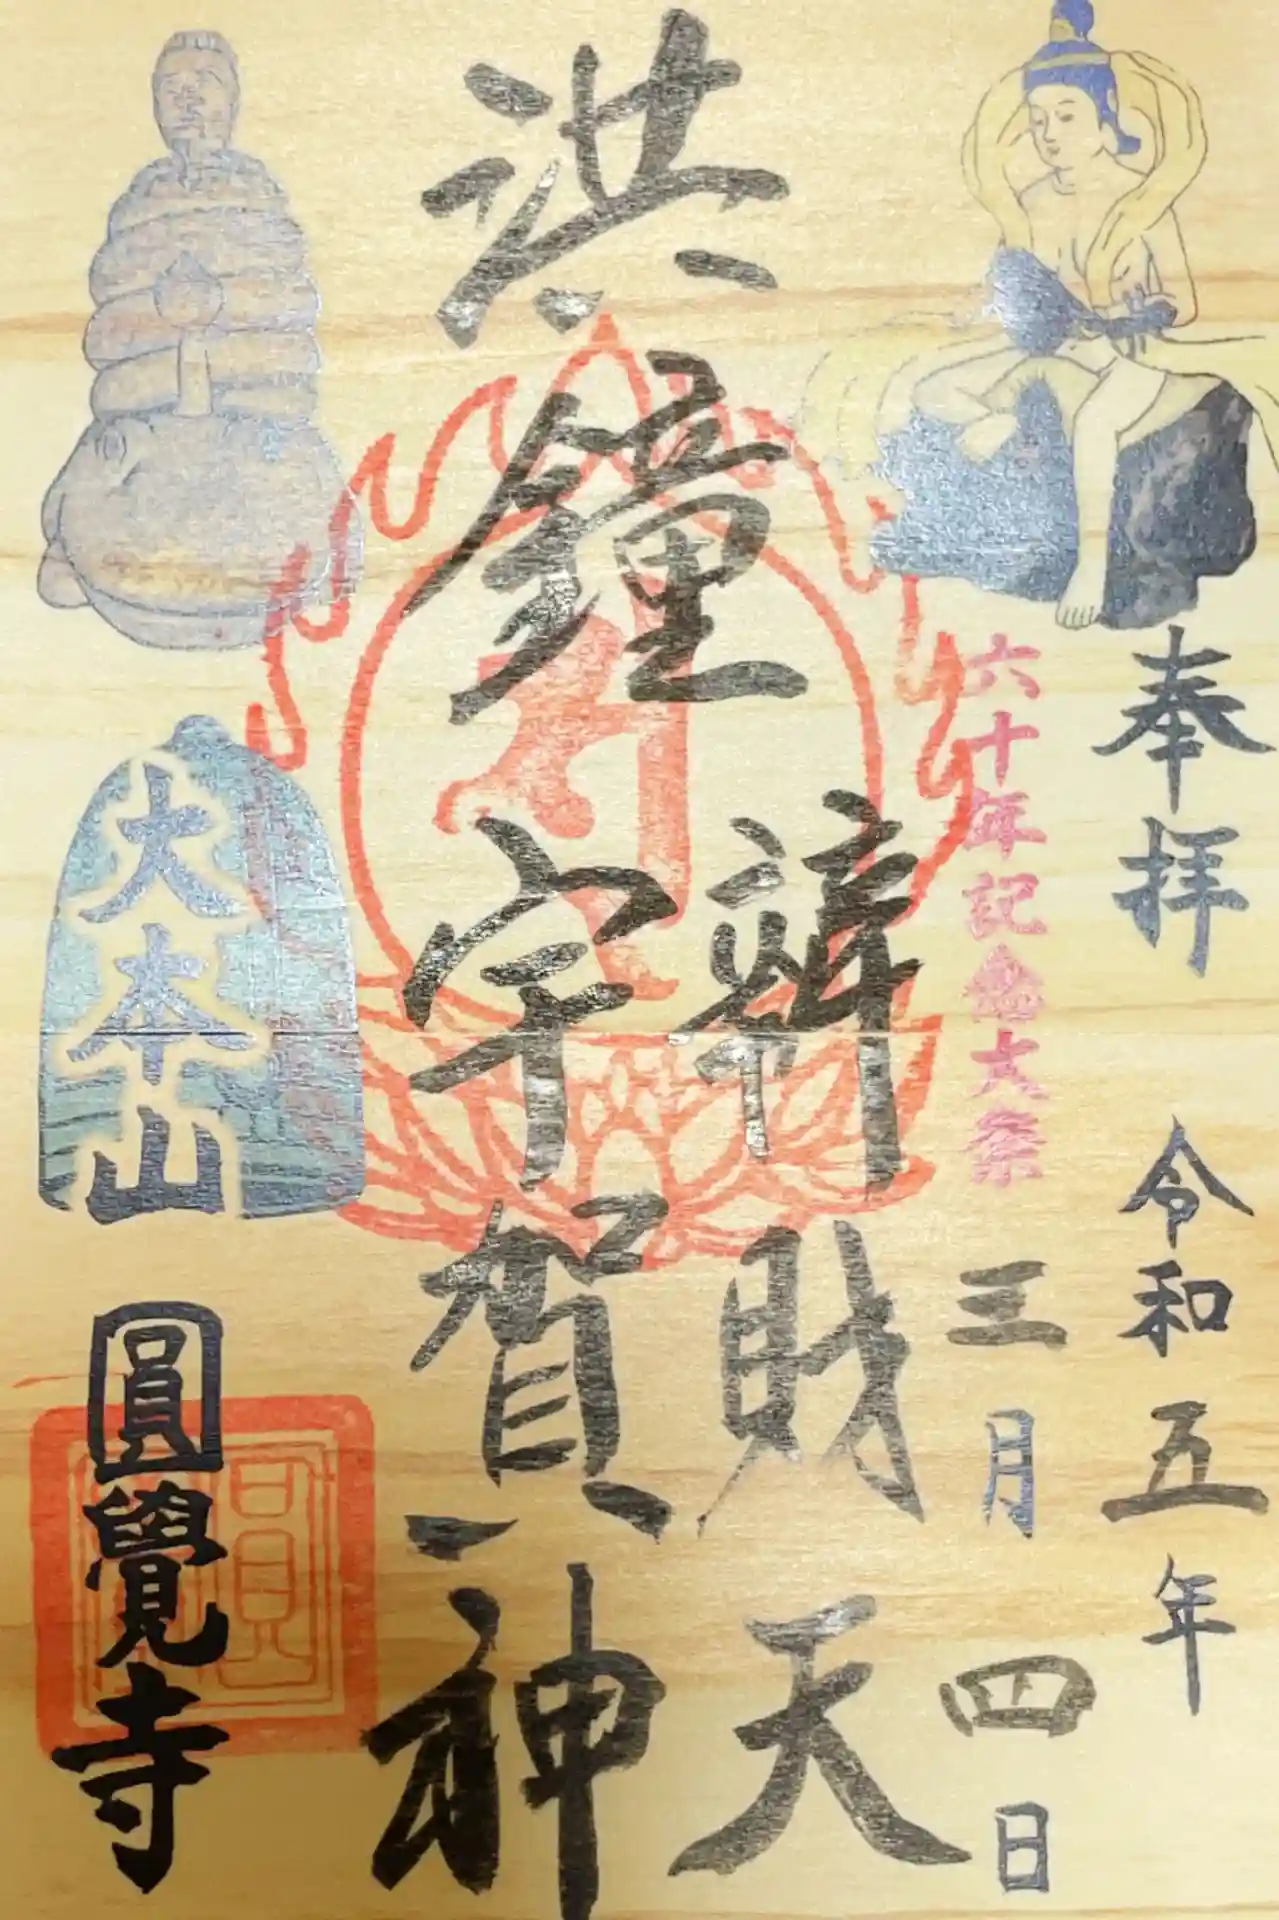 奉拝
令和五年
六十年記念大祭
三月四日
洪鐘
辨財天
宇賀神
大本山
圓覺寺